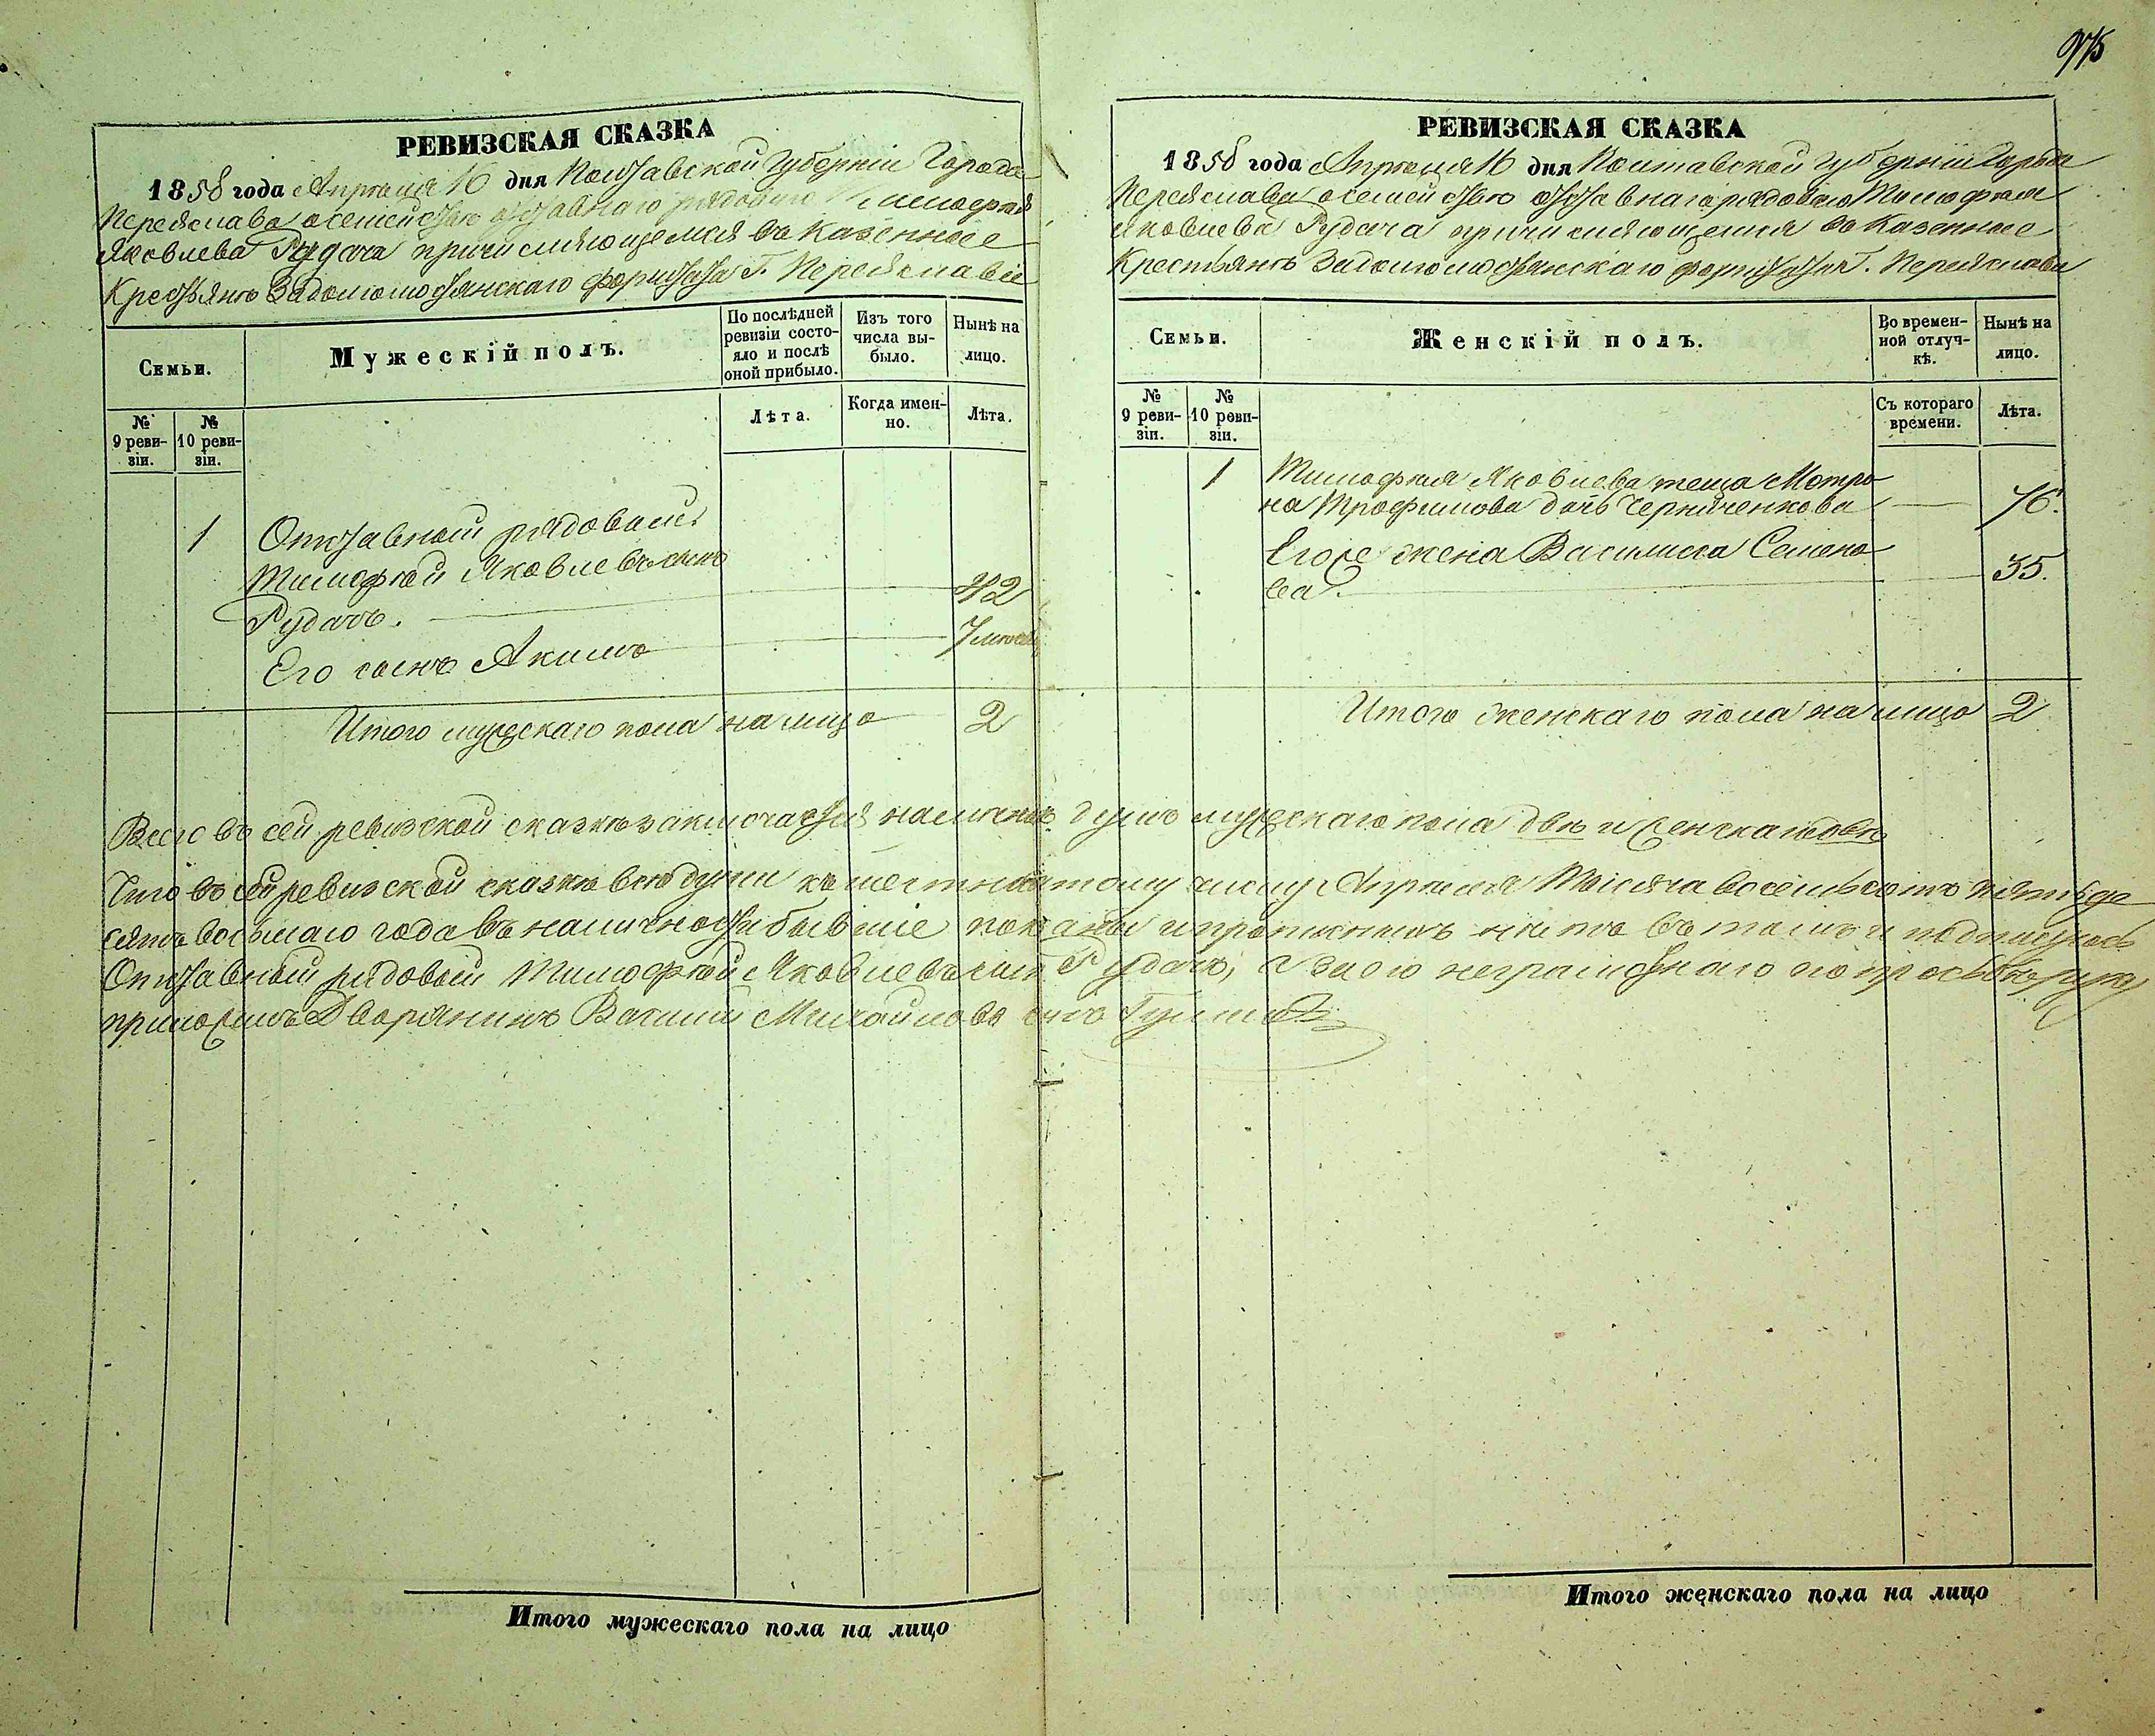 РЕВИЗСКАЯ СКАЗКА
1858 года Апрѣля 16 дня Полтавской Губерніи Города
Переяслава о семействѣ отставнаго рядоваго Тимофея
Яковлева Рудача причисляющемся въ Казенные
Крестьяне Задолгомостянскаго форштата Г. Переяслава
Семьи.
Мужескій полъ.
По послѣдней ревизіи состояло и послѣ оной прибыло.
Изъ того числа выбыло.
Нынѣ на лицо.
№ 9 ревизіи.
№ 10 ревизіи.
Лѣта.
Когда именно.
Лѣта.
1 Отставной рядовой
Тимофей Яковлевъ сынъ
Рудачъ. 42
Его сынъ Акимъ 7
Итого мужескаго пола на лицо 2
975
РЕВИЗСКАЯ СКАЗКА
1858 года Апрѣля 16 дня Полтавской Губерніи Города
Переяслава о семействѣ отставнаго рядоваго Тимофея
Яковлева Рудача причисляющемся въ Казенные
Крестьяне Задолгомостянскаго форштата Г. Переяслава
Семьи.
Женскій полъ.
Во временной отлучкѣ.
Нынѣ на лицо.
№ 9 ревизіи.
№ 10 ревизіи.
Съ котораго времени.
Лѣта.
1 Тимофея Яковлева теща Мотро
на Трофимова дочь Черниченкова 76.
Его же жена Василиса Семено
ва. 35.
Итого женскаго пола на лицо 2
Всего въ сей ревизской сказкѣ заключается наличныхъ душъ мужескаго пола двѣ и женскаго двѣ
Что въ сей ревизской сказкѣ всѣ души къ шестнадцатому числу Апрѣля Тысяча восемьсотъ пятьде
сятъ восьмаго года въ наличности бывшіе показаны и пропускныхъ нѣтъ въ томъ и подписуюсь
Отставный рядовый Тимофей Яковлевъ сынъ Рудачъ, а за его неграмотнаго его прозьбѣ руку
приложилъ Дворянинъ Василій Михайловъ сынъ
Итого мужескаго пола на лицо
Итого женскаго пола на лицо